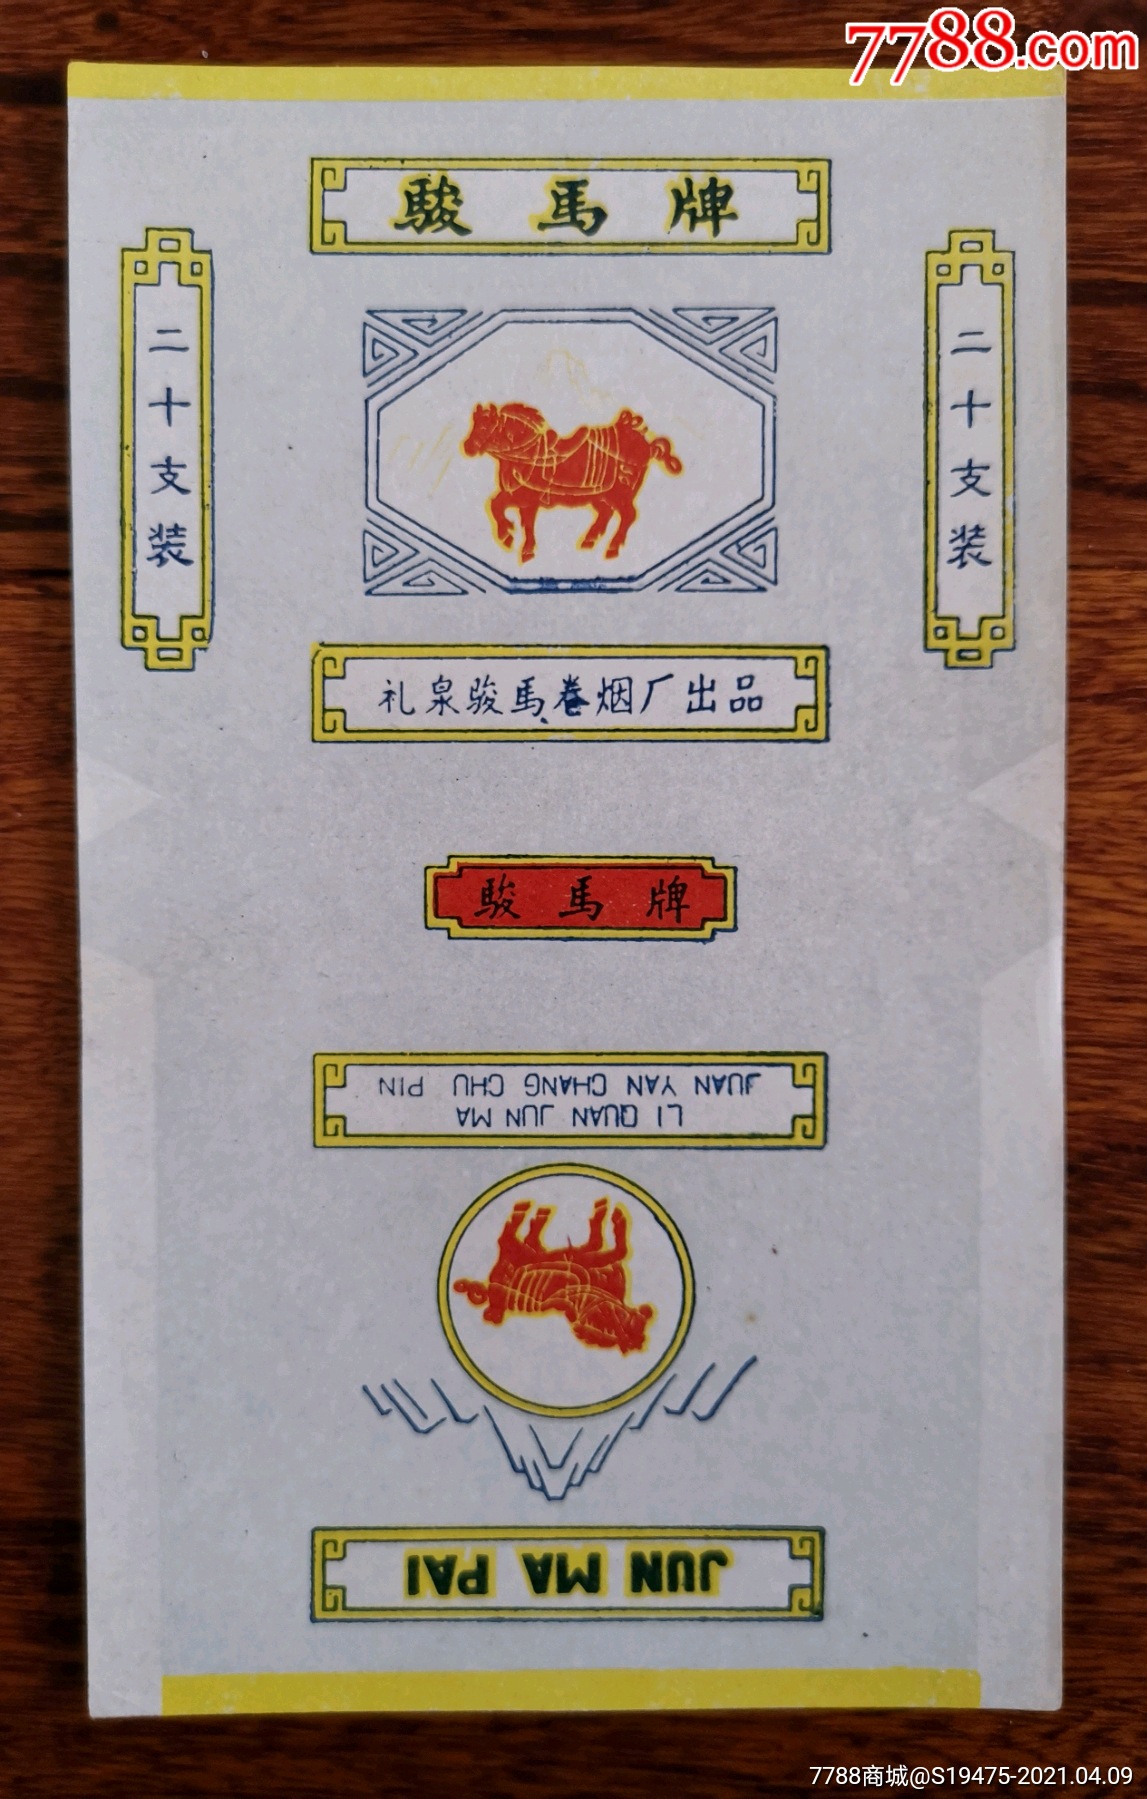 7788.com
駿馬牌
二十支装
二十支装
礼泉骏馬卷烟厂出品
骏馬牌
LI QUAN JUN MA
JUAN YAN CHANG CHU PIN
JUN MA PAI
7788商城@S19475-2021.04.09